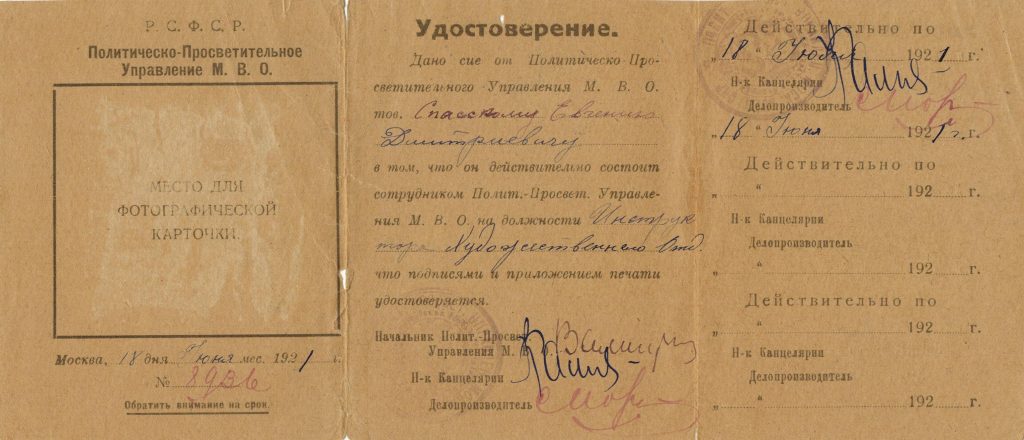 Р. С. Ф. С. Р.
Политическо-Просветительное
Управление М. В. О.
МЕСТО ДЛЯ
ФОТОГРАФИЧЕСКОЙ
КАРТОЧКИ.
Москва, 18 дня Июня мес. 1921 г.
№ 8936
Обратить внимание на срок.
Удостоверение.
Дано сие от Политическо-Про-
светительного Управления М. В. О.
тов. Спасскому Евгению
Дмитриевичу
в том, что он действительно состоит
сотрудником Полит.-Просвет. Управле-
ния М. В. О. на должности Инструк
тора Художественного Отд.
что подписями и приложением печати
удостоверяется.
Начальник Полит.-Просвет
Управления М. В. О.
Н-к Канцелярии
Делопроизводитель
Действительно по
„18 “ Июля 1921 г.
Н-к Канцелярии
Делопроизводитель
„18 “ Июня 1921 г.
Действительно по
„ “ 192 г.
Н-к Канцелярии
Делопроизводитель
„ “ 192 г.
Действительно по
„ “ 192 г.
Н-к Канцелярии
Делопроизводитель
„ “ 192 г.